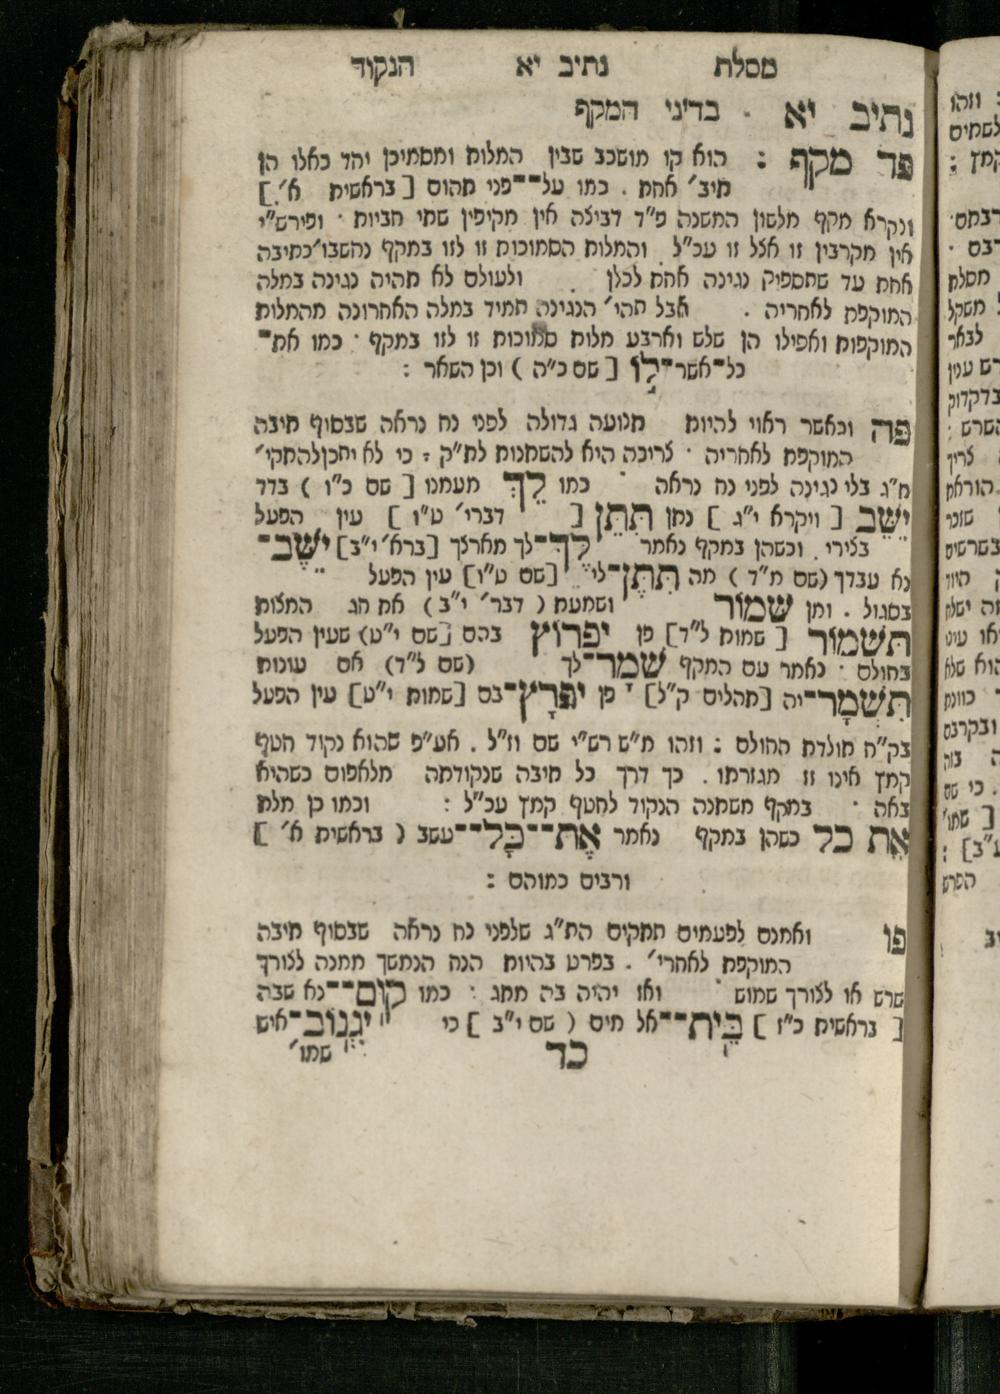 מסלת נתיב יא הנקוד
נתיב יא . בדיני המקף
פד מקף : הוא קו מושכב שבין המלות ומסמיכן יחד כאלו הן
תיב׳ אחת . כמו על־־פני תהום [ בראשית א׳ ]
ונקרא מקף מלשון המשנה פ״ד דביצה אין מקיפין שתי חביות · ופירש״י
אין מקרבין זו אצל זו עכ״ל . והמלות הסמוכות זו לזו במקף נחשבו׳ כתיבה
אחת עד שתספיק נגינה אחת לכלן ולעולם לא תהיה נגינה במלה
המוקפת לאחריה . אבל תהי׳ הנגינה תמיד במלה האחרונה מהמלות
המוקפות ואפילו הן שלש וארבע מלות סמוכות זו לזו במקף · כמו את־
כל־אשר־לו [ שם כ״ה ) וכן השאר :
פה וכאשר ראוי להיות תנועה גדולה לפני נח נראה שבסוף תיבה
המוקפת לאחריה · צריכה היא להשתנות לת״ק : כי לא יתכן להתקי׳
ת״ג בלי נגינה לפני נח נראה · כמו לֵךְ מעמנו [ שם כ״ו ) בדד
יֵשֵׁב [ ויקרא י״ג ] נתן תִּתֵּן [ דברי׳ ט״ו ] עין הפעל
בצירי . וכשהן במקף נאמר לֶךְ־לך מארצך [ברא׳ י״ב] יֵשֶׁב־
נא עבדך (שם מ״ד ) מה תִּתֶּן־לי [שם ט״ו] עין הפעל
בסגול . ומן שמור ושמעת ( דבר׳ י״ב ) את חג המצות
תשמור [ שמות ל״ד] פן יפרוץ בהם [שם י״ט) שעין הפעל
בחולם · נאמר עם המקף שמר־לך (שם ל״ד) אם עונות
תִּשְׁמָר־יה [תהלים ק״ל] פן יפרָץ־בם [שמות י״ט] עין הפעל
בק״ח תולדת החולם : וזהו מ״ש רש״י שם וז״ל . אע״פ שהוא נקוד חטף
קמץ אינו זז מגזרתו . כך דרך כל תיבה שנקודתה מלאפום כשהיא
באה · במקף משתנה הנקוד לחטף קמץ עכ״ל : וכמו כן מלת
אֵת כל כשהן במקף נאמר אֶת־־כָּל־־עשב ( בראשית א׳ ]
ורבים כמוהם :
פו ואמנם לפעמים תתקים הת״ג שלפני נח נראה שבסוף תיבה
המוקפת לאחרי׳ . בפרט בהיות הנח הנמשך ממנה לצורך
שרש או לצורך שמוש · ואז יהיה בה מתג : כמו קום־־נא שבה
[ בראשית כ״ז ] בֵּית־־אל מים ( שם י״ב ] כי יִגְנוֹב־איש
כד שמו׳